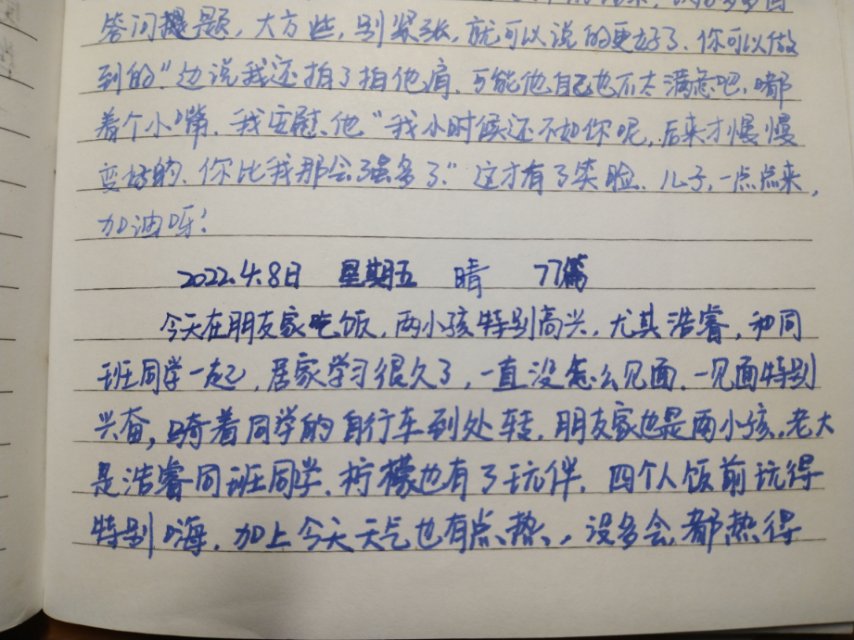 答问提题,大方些,别紧张,就可以说的更好了.你可以做
到的"边说我还拍了拍他肩.可能他自己也不太满意吧,嘟
着个小嘴.我安慰他"我小时候还不如你呢,后来才慢慢
变好的、你比我那会强多了."这才有了笑脸.儿子,一点点来,
加油呀!
2022.4.8日 星期五 晴 77篇
今天在朋友家吃饭,两小孩特别高兴,尤其浩睿,和同
班同学一起,居家学习很久了,一直没怎么见面.一见面特别
兴奋,骑着同学的自行车到处转.朋友家也是两小孩.老大
是浩睿同班同学.柠檬也有了玩伴.四个人饭前玩得
特别嗨.加上今天天气也有点热,没多会都热得